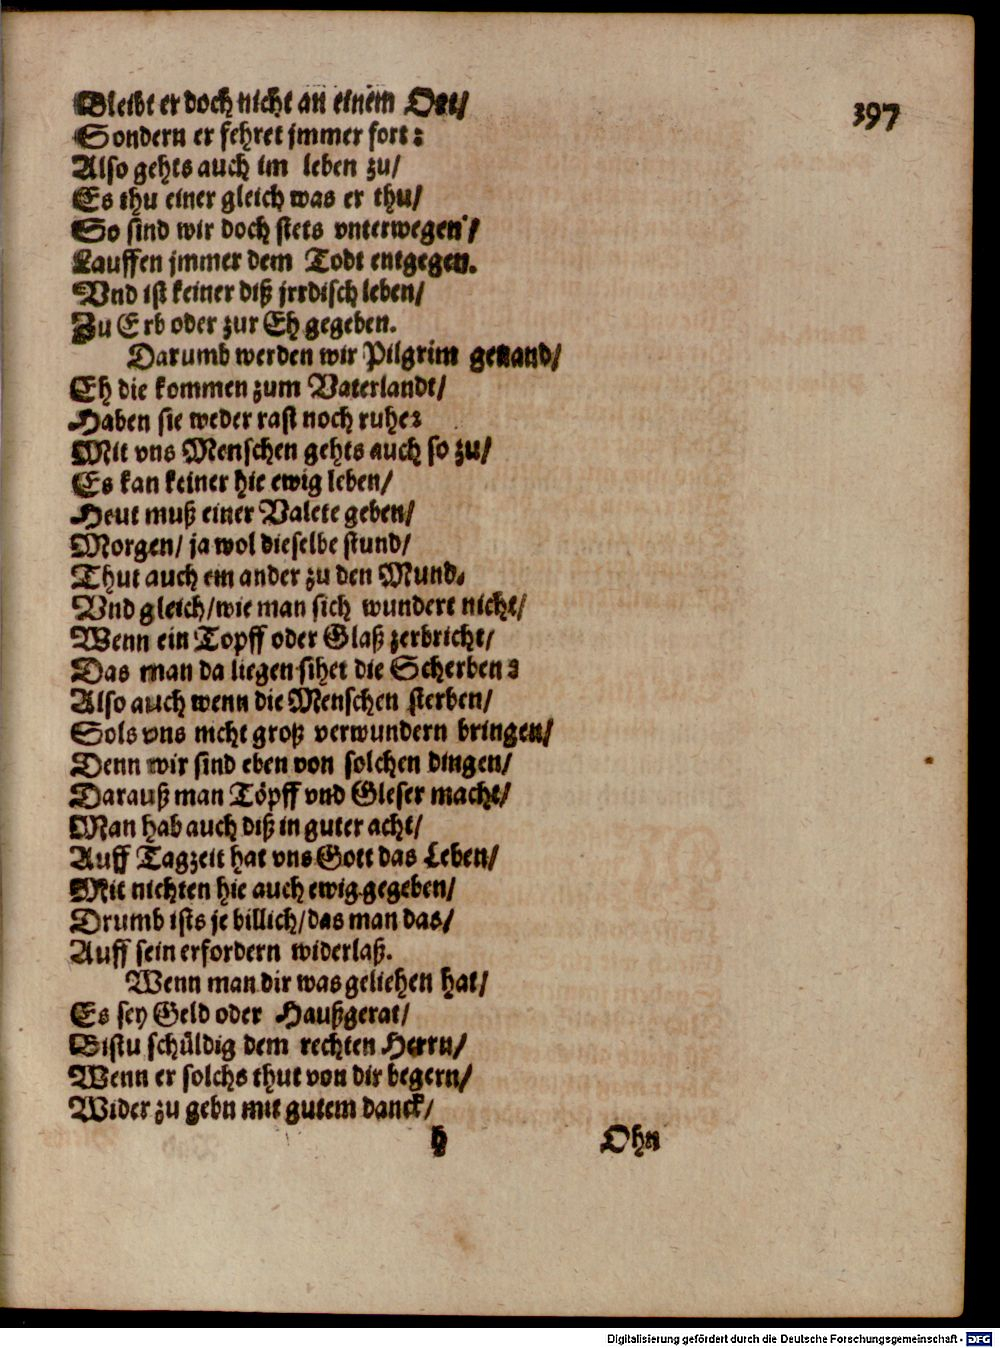 Bleibt er doch nicht an einem Ort/
397
Sondern er fehret jmmer fort:
Also gehts auch im leben zu/
Es thu einer gleich was er thu/
So sind wir doch stets vnterwegen/
Lauffen jmmer dem Todt entgegen.
Vnd ist keiner diß jrrdisch leben/
Zu Erb oder zur Eh gegeben.
Darumb werden wir Pilgrim genand/
Eh die kommen zum Vaterlandt/
Haben sie weder rast noch ruhe:
Mit vns Menschen gehts auch so zu/
Es kan keiner hie ewig leben/
Heut muß einer Valete geben/
Morgen/ ja wol dieselbe stund/
Thut auch ein ander zu den Mund.
Vnd gleich/wie man sich wundert nicht/
Wenn ein Topff oder Glaß zerbricht/
Das man da liegen sihet die Scherben:
Also auch wenn die Menschen sterben/
Sols vns nicht groß verwundern bringen/
Denn wir sind eben von solchen dingen/
Darauß man Töpff vnd Gleser macht/
Man hab auch diß in guter acht/
Auff Tagzeit hat vns Gott das Leben/
Mit nichten hie auch ewig gegeben/
Drumb ists je billich/das man das/
Auff sein erfordern widerlaß.
Wenn man dir was geliehen hat/
Es sey Geld oder Haußgerat/
Bistu schüldig dem rechten Herrn/
Wenn er solchs thut von dir begern/
Wider zu gebn mit gutem danck/
h Ohn
Digitalisierung gefördert durch die Deutsche Forschungsgemeinschaft - DFG